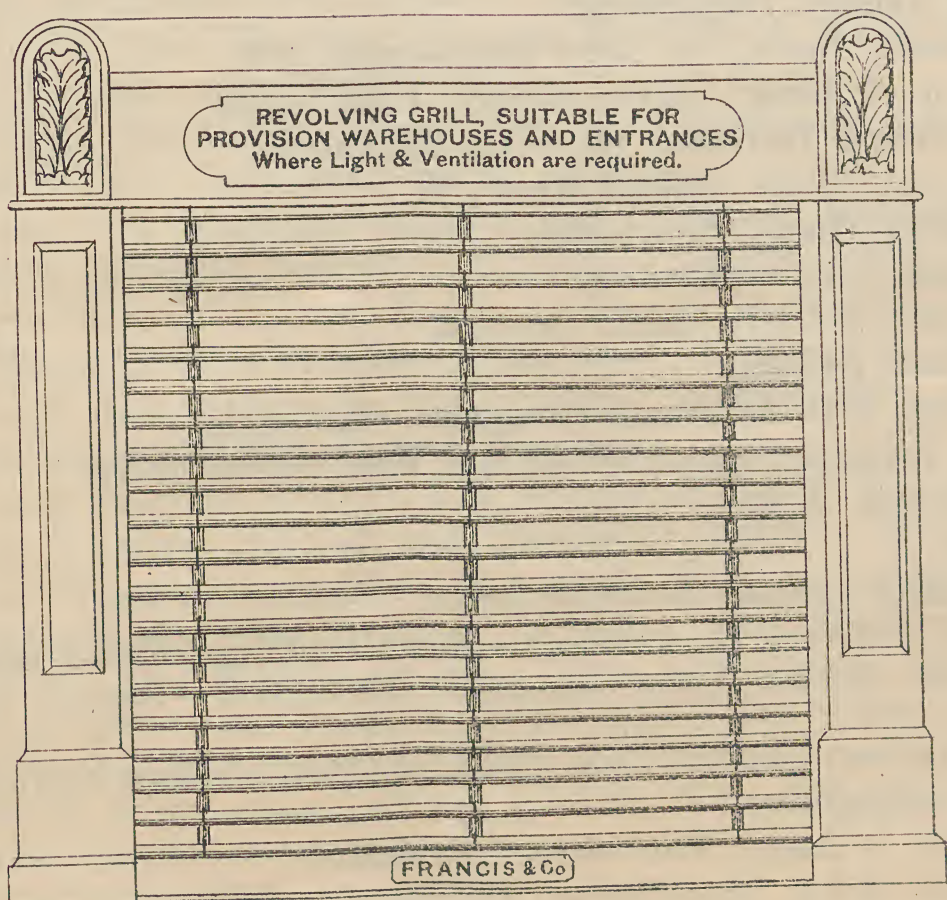 REVOLVING GRILL, SUITABLE FOR
PROVISION WAREHOUSES AND ENTRANCES
Where Light & Ventilation are required.
FRANCIS & Co